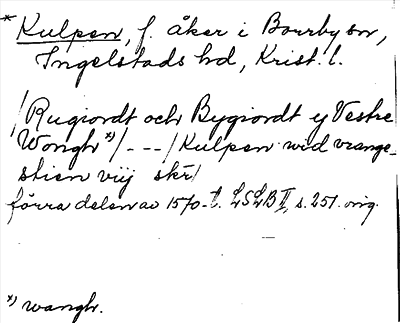 * Kulpen, f. åker i Borrby sn,
Ingelstads hd, Krist. l.
/Rugiordt och Bygiordt y Vestre
Wongh *)/ - - - /Kulpen wid vrange-
stien viij skr/
förra delen av 1570-t. LSLB II, s. 251. orig.
*) wangh.